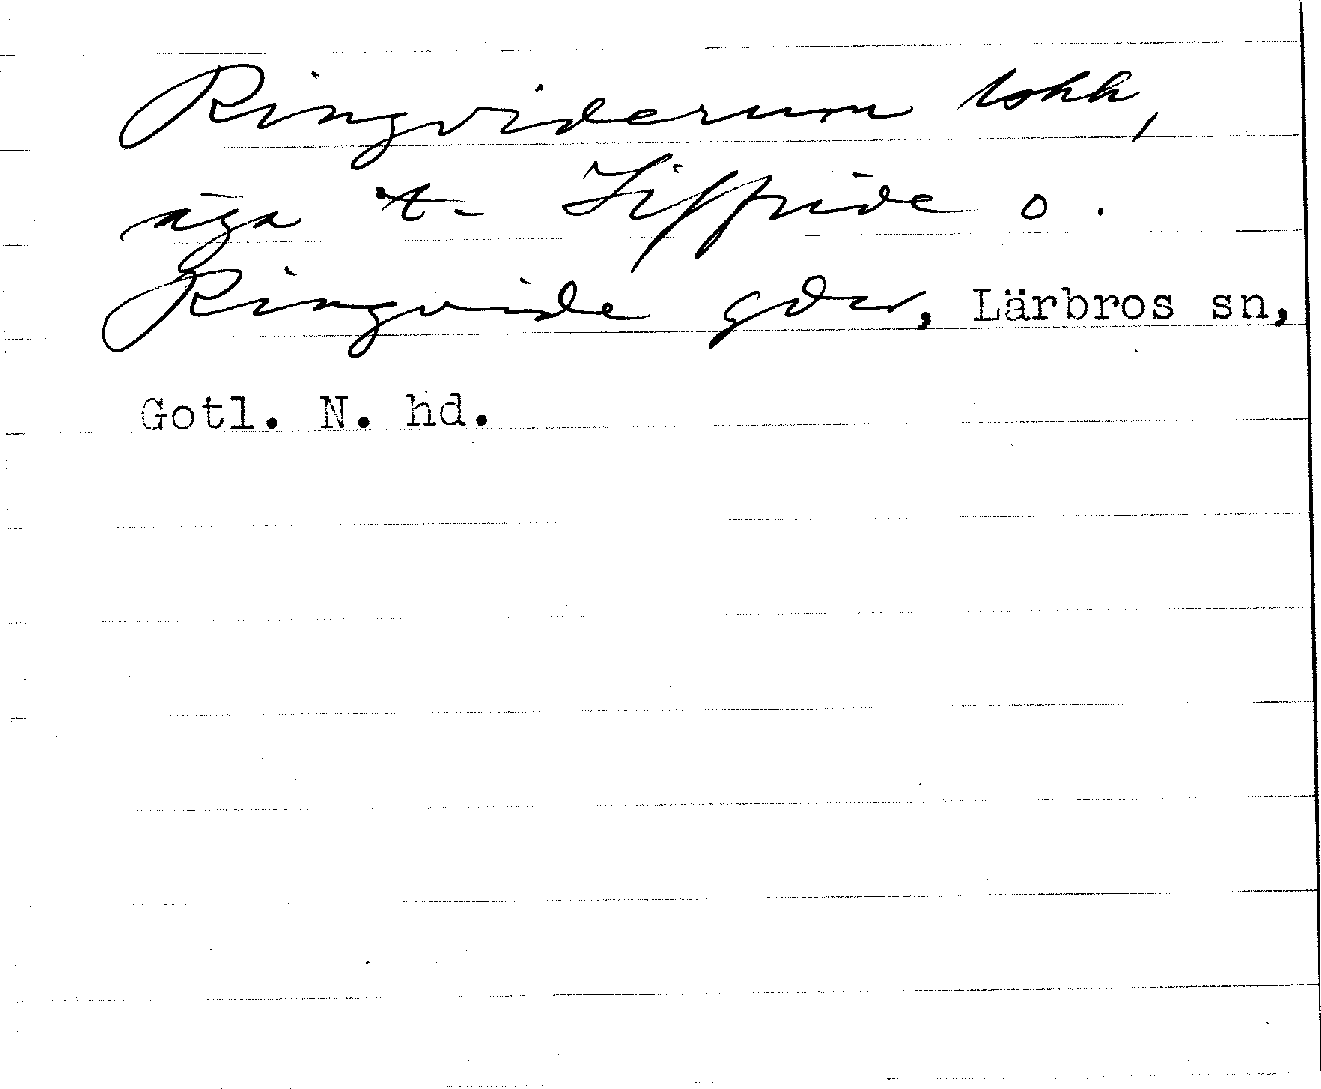 Ringviderum tskh,
äga t. Liffride o.
Ringvide gdar, Lärbros sn,
Gotl. N. hd.